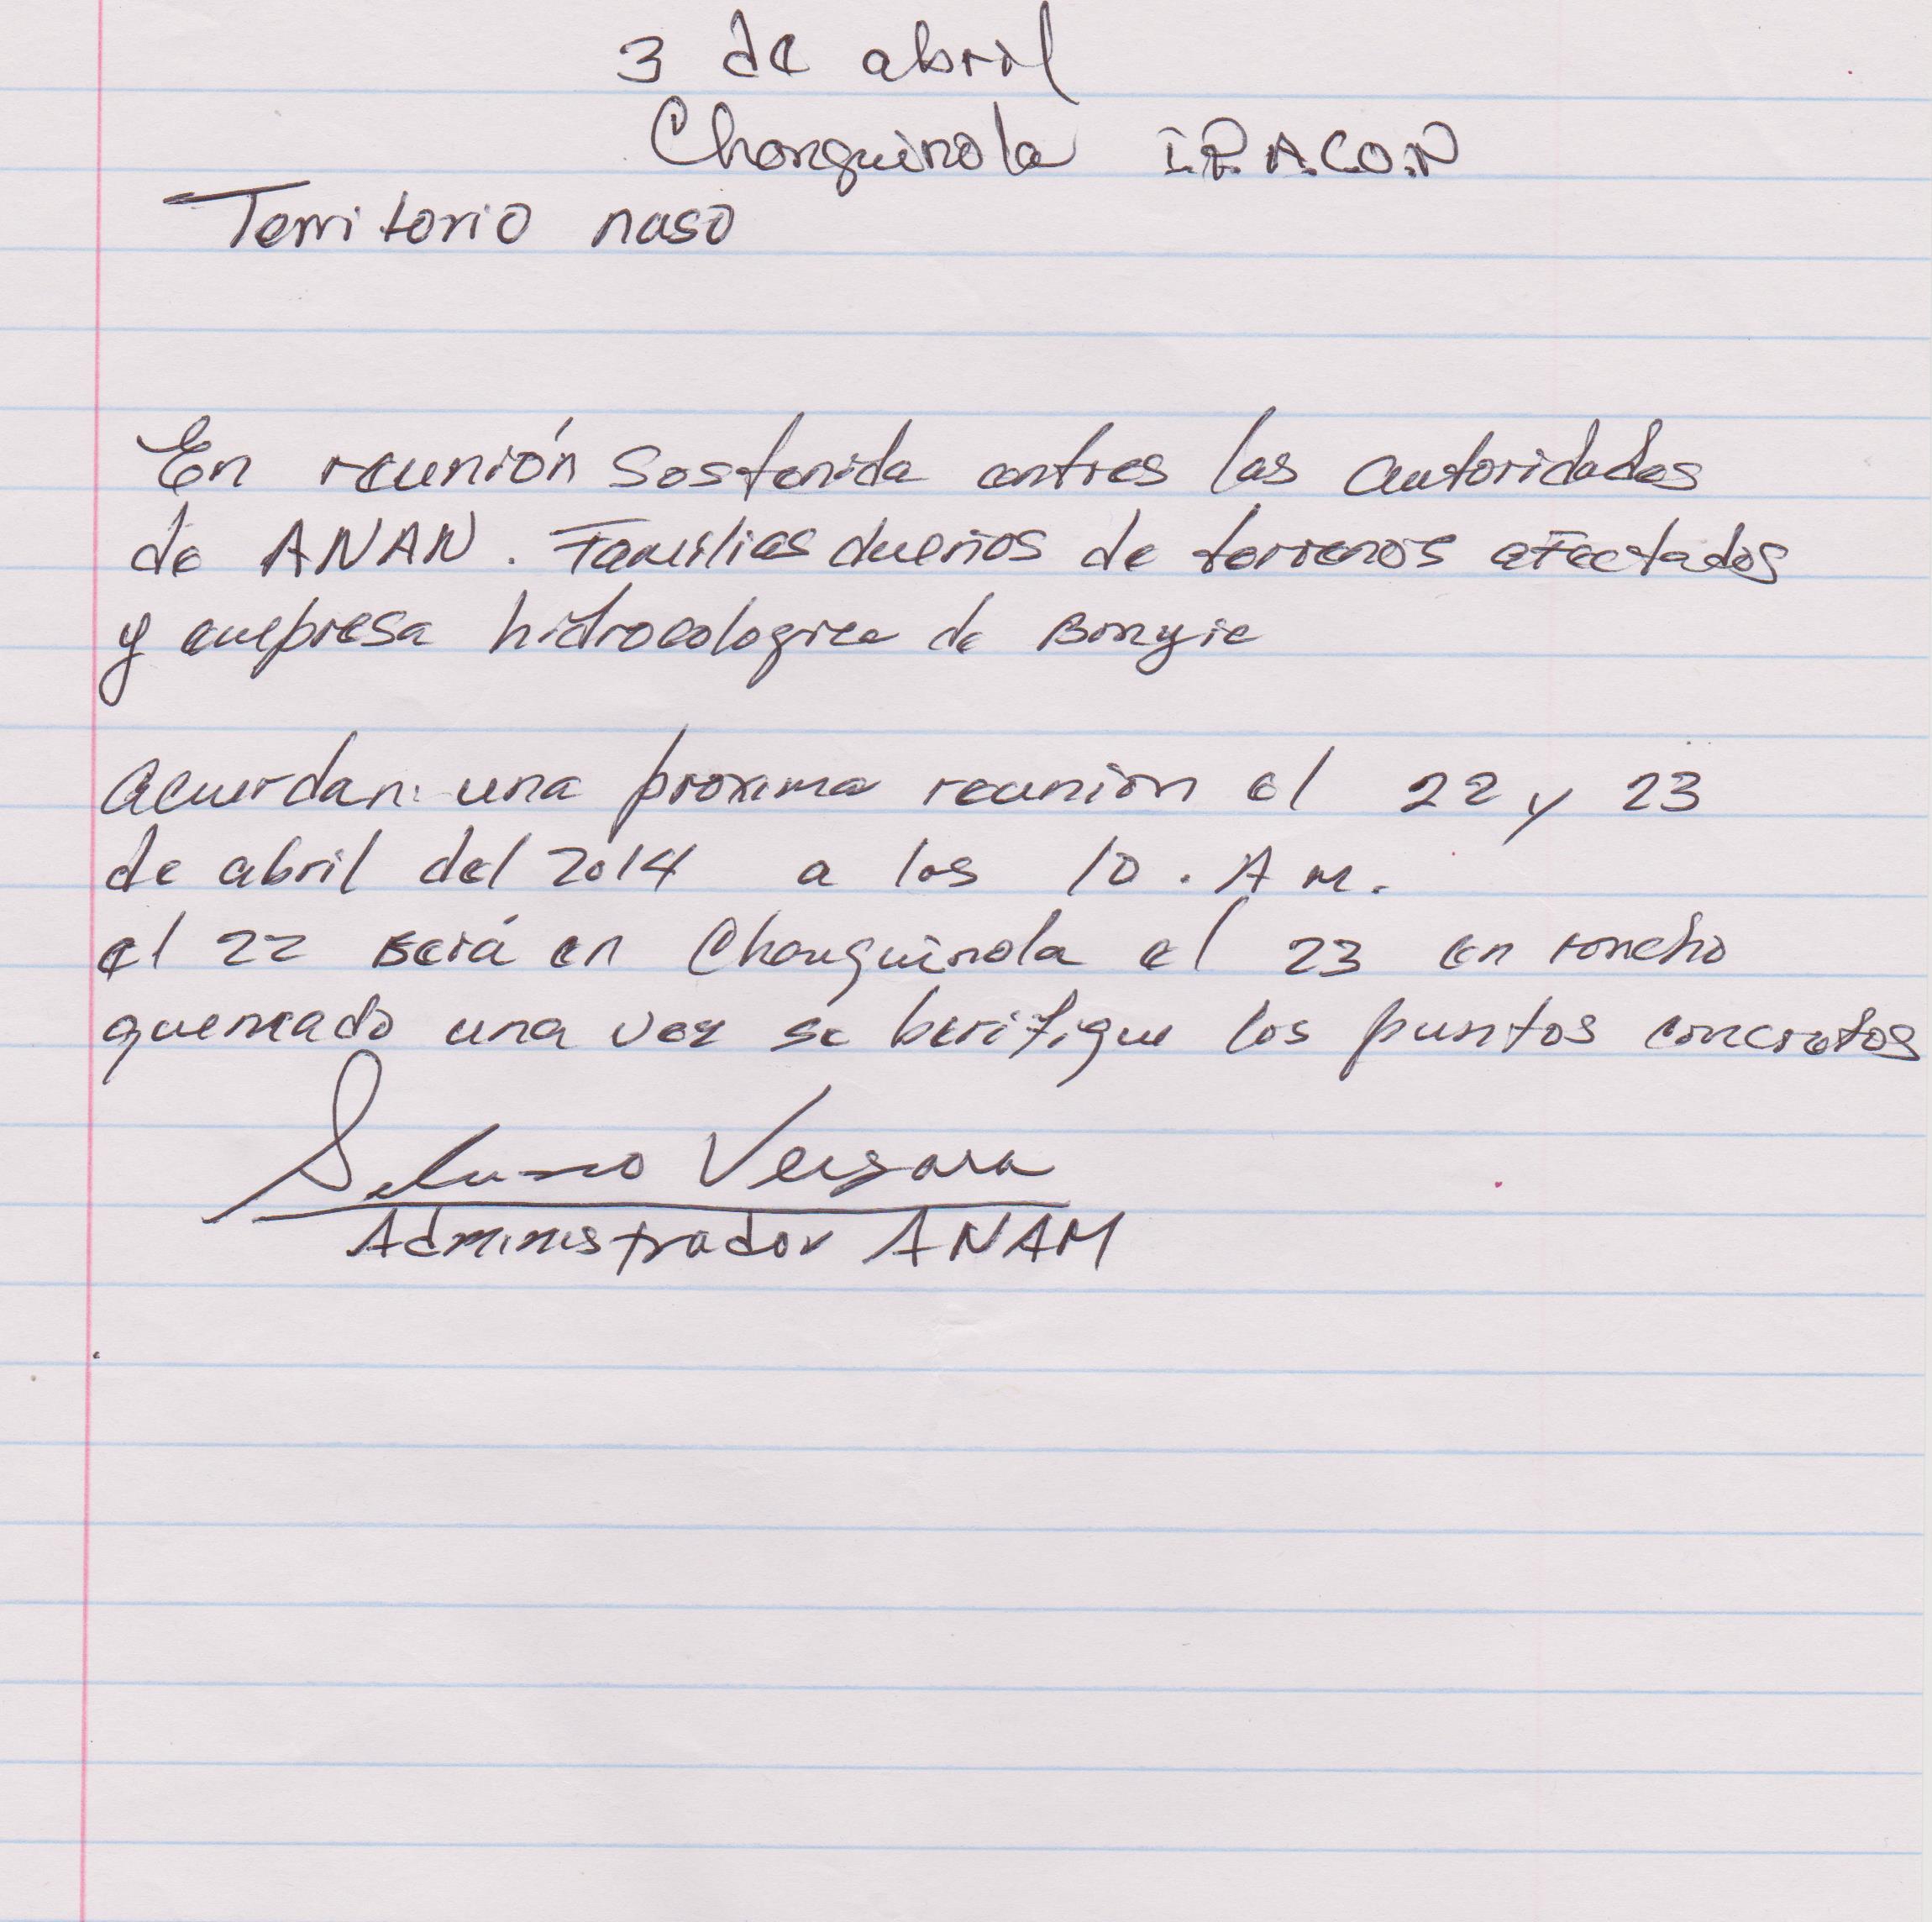 3 de abril
Changuinola I.P.A.C.O.N
Territorio naso
En reunión Sostenida entres las autoridades
de ANAN. Familias dueños de terrenos afectados
y empresa hidroecologica de Bonyic
acuerdan una proxima reunion el 22 y 23
de abril del 2014 a las 10. A M.
el 22 será en Changuinola el 23 en rancho
quemado una vez se berifique los puntos concretos
Vergara
Administrador ANAM